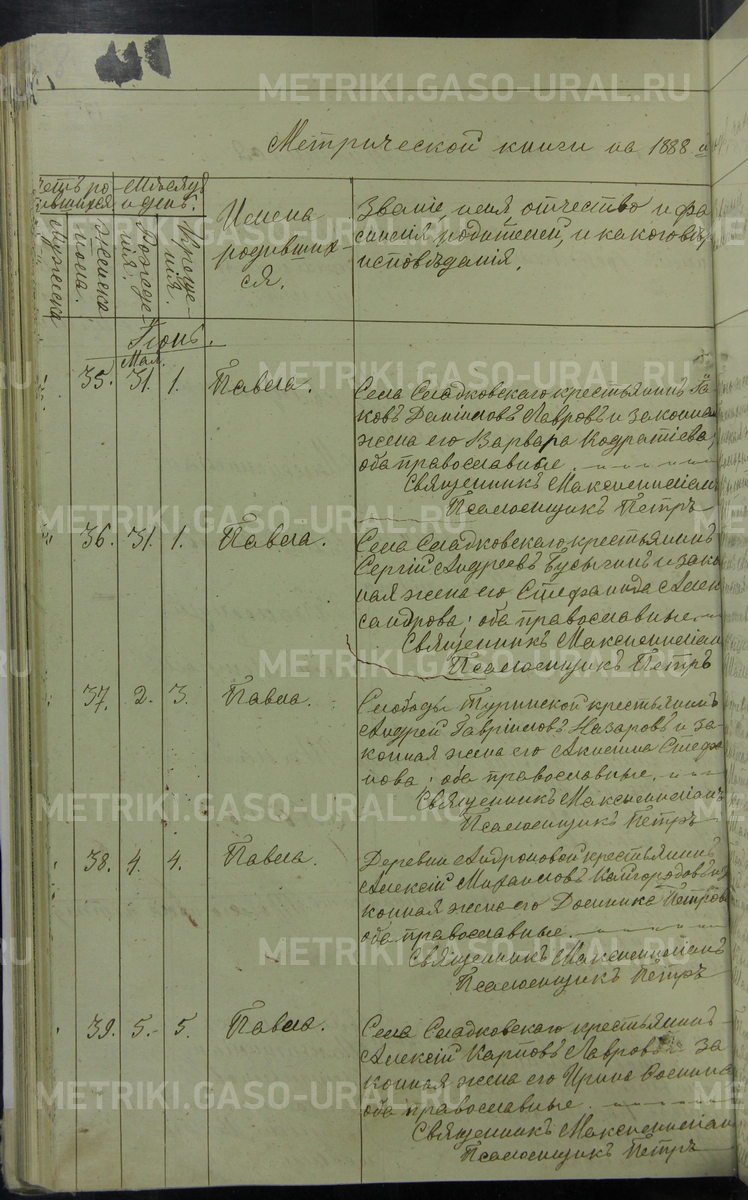 METRIKI.GASO-URAL.RU
Метрической книги на 1888 й
Счетъ ро-
дившихся
Мѣсяцъ
и день.
мужска
женска
пола.
Рожде-
нія.
Креще-
нія.
Имена
родивших-
ся.
Званіе, имя, отчество и фа
милія родителей, и какого вѣр
исповѣданія.
Іюнь.
Мая.
35. 31. 1. Павла. Села Сладковскаго крестьянинъ Іа
ковъ Даніиловъ Лавровъ и законная
жена его Варвара Кодратіева,
оба православные.
Священникъ Максимиліан
Псаломщикъ Петръ
36. 31. 1. Павла. Села Сладковскаго крестьянинъ
Сергій Андреевъ и зако
ная жена его Стефанида Алек
сандрова; оба православные.
Священникъ Максимиліан
Псаломщикъ Петръ
37. 2. 3. Павла. Слободы Туринской крестьянинъ
Андрей Гавріиловъ Назаровъ и за-
конная жена его Акилина Стефа
нова; оба православные.
Священникъ Максимиліанъ
Псаломщикъ Петръ
38. 4. 4. Павла. Деревни Андроновой крестьянинъ
Алексій Михаиловъ Кайгородовъ и з
конная жена его Домника Петрова
оба православные.
Священникъ Максимиліанъ
Псаломщикъ Петръ
39. 5. 5. Павла. Села Сладковскаго крестьянинъ
Алексій Карповъ Лавровъ за
конная жена его Ирина
оба православные.
Священникъ Максимиліан
Псаломщикъ Петръ